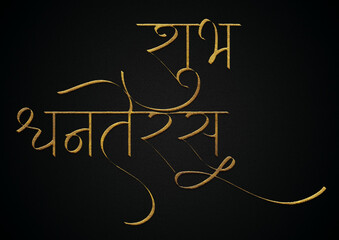 शुभ
धनतेरस